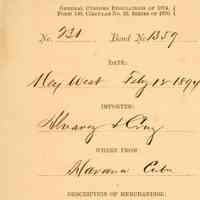 GENERAL CUSTOMS REGULATIONS OF 1874,
FORM 140, CIRCULAR NO. 23, SERIES OF 1876.
No. 231 Bond No 1359
DATE:
Key West Feby 12 1894
IMPORTER:
Alvarez & Cruz
WHERE FROM
Havana Cuba
DESCRIPTION OF MERCHANDISE: